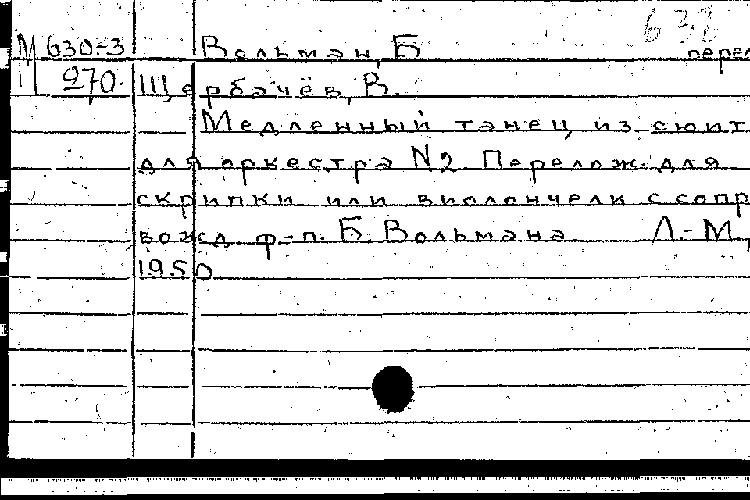 632
М 630-3 Вольман, Б перел
П 270. Щербачёв, В.
Медленный танец из сюит
для оркестра № 2. Перелож. для
скрипки или виолончели с сопр
вожд ф-п. Б. Вольмана Л.-М.,
1950